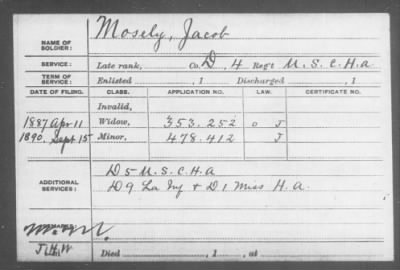 NAME OF SOLDIER: Mosely, Jacob
SERVICE: Late rank, Co. D, 4 Reg't U. S. C. H. A.
TERM OF SERVICE: Enlisted , 1 Discharged , 1
DATE OF FILING. CLASS. APPLICATION NO. LAW. CERTIFICATE NO.
Invalid,
1887 Apr 11 Widow, 353.252 O J
1890. Sept 15 Minor, 478.412 J
ADDITIONAL SERVICES: D 5 U. S. C. H. A
D 9 La Inf & D 1 Miss H. A.
J.H.W
Died , 1 , at